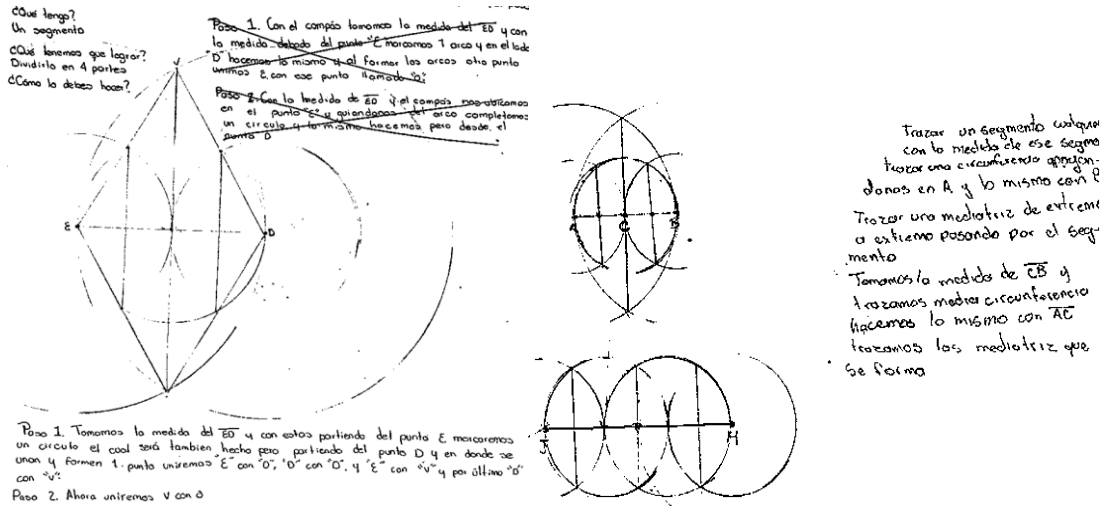 ¿Qué tengo?
Un segmento
¿Qué tenemos que lograr?
Dividirlo en 4 partes
¿Cómo lo debes hacer?
Paso 1. Con el compás tomamos la medida del ED y con
la medida debado del punto "E" marcamos 1 arco y en el lado
D hacemos lo mismo y al formar los arcos otro punto
unimos E con ese punto llamado "O".
Paso 2. Con la medida de ED y el compás nos ubicamos
en el punto "E" y guiandonos del arco completamos
un circulo y lo mismo hacemos pero desde el
punto D
V
E
D
Paso 1. Tomamos la medida del ED y con estas partiendo del punto E marcaremos
un circulo el cual será tambien hecho pero partiendo del punto D y en donde se
unan y formen 1 punto uniremos "E" con "O", "D" con "O", y "E" con "V" y por último "D"
con "V".
Paso 2. Ahora uniremos V con O
A
C
B
J
H
Trazar un segmento
con la medida de ese
trazar una circunferencia
donos en A y lo mismo con
Trazar una mediatriz de extremo
a extremo pasando por el seg-
mento
Tomamos la medida de CB y
trazamos media circunferencia
hacemos lo mismo con AC
trazamos las mediatriz que
se forma